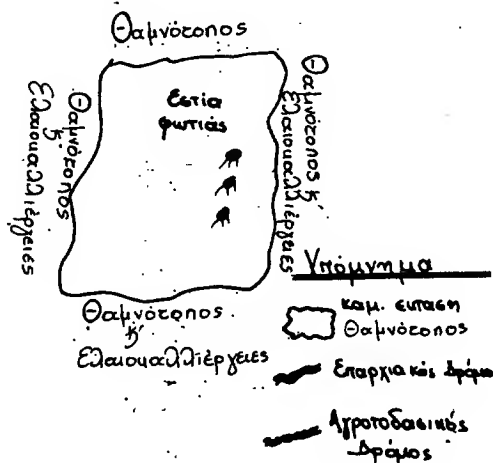 Θαμνότοπος
Εστία
φωτιάς
Θαμνότοπος
κ'
Ελαιοκαλλιέργειες
Θαμνότοπος κ'
Ελαιοκαλλιέργειες
Θαμνότοπος
κ'
Ελαιοκαλλιέργειες
Υπόμνημα
καμ. έκταση
Θαμνότοπος
Επαρχιακός Δρόμο
Αγροτοδασικός
Δρόμος